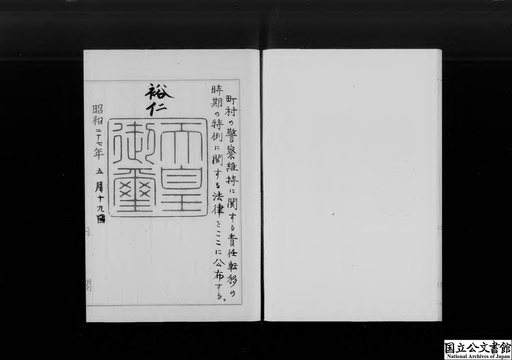 町村の警察維持に関する責任転移の
時期の特例に関する法律をここに公布する。
裕仁
天皇
御璽
昭和二十七年五月十九日
国立公文書館
National Archives of Japan